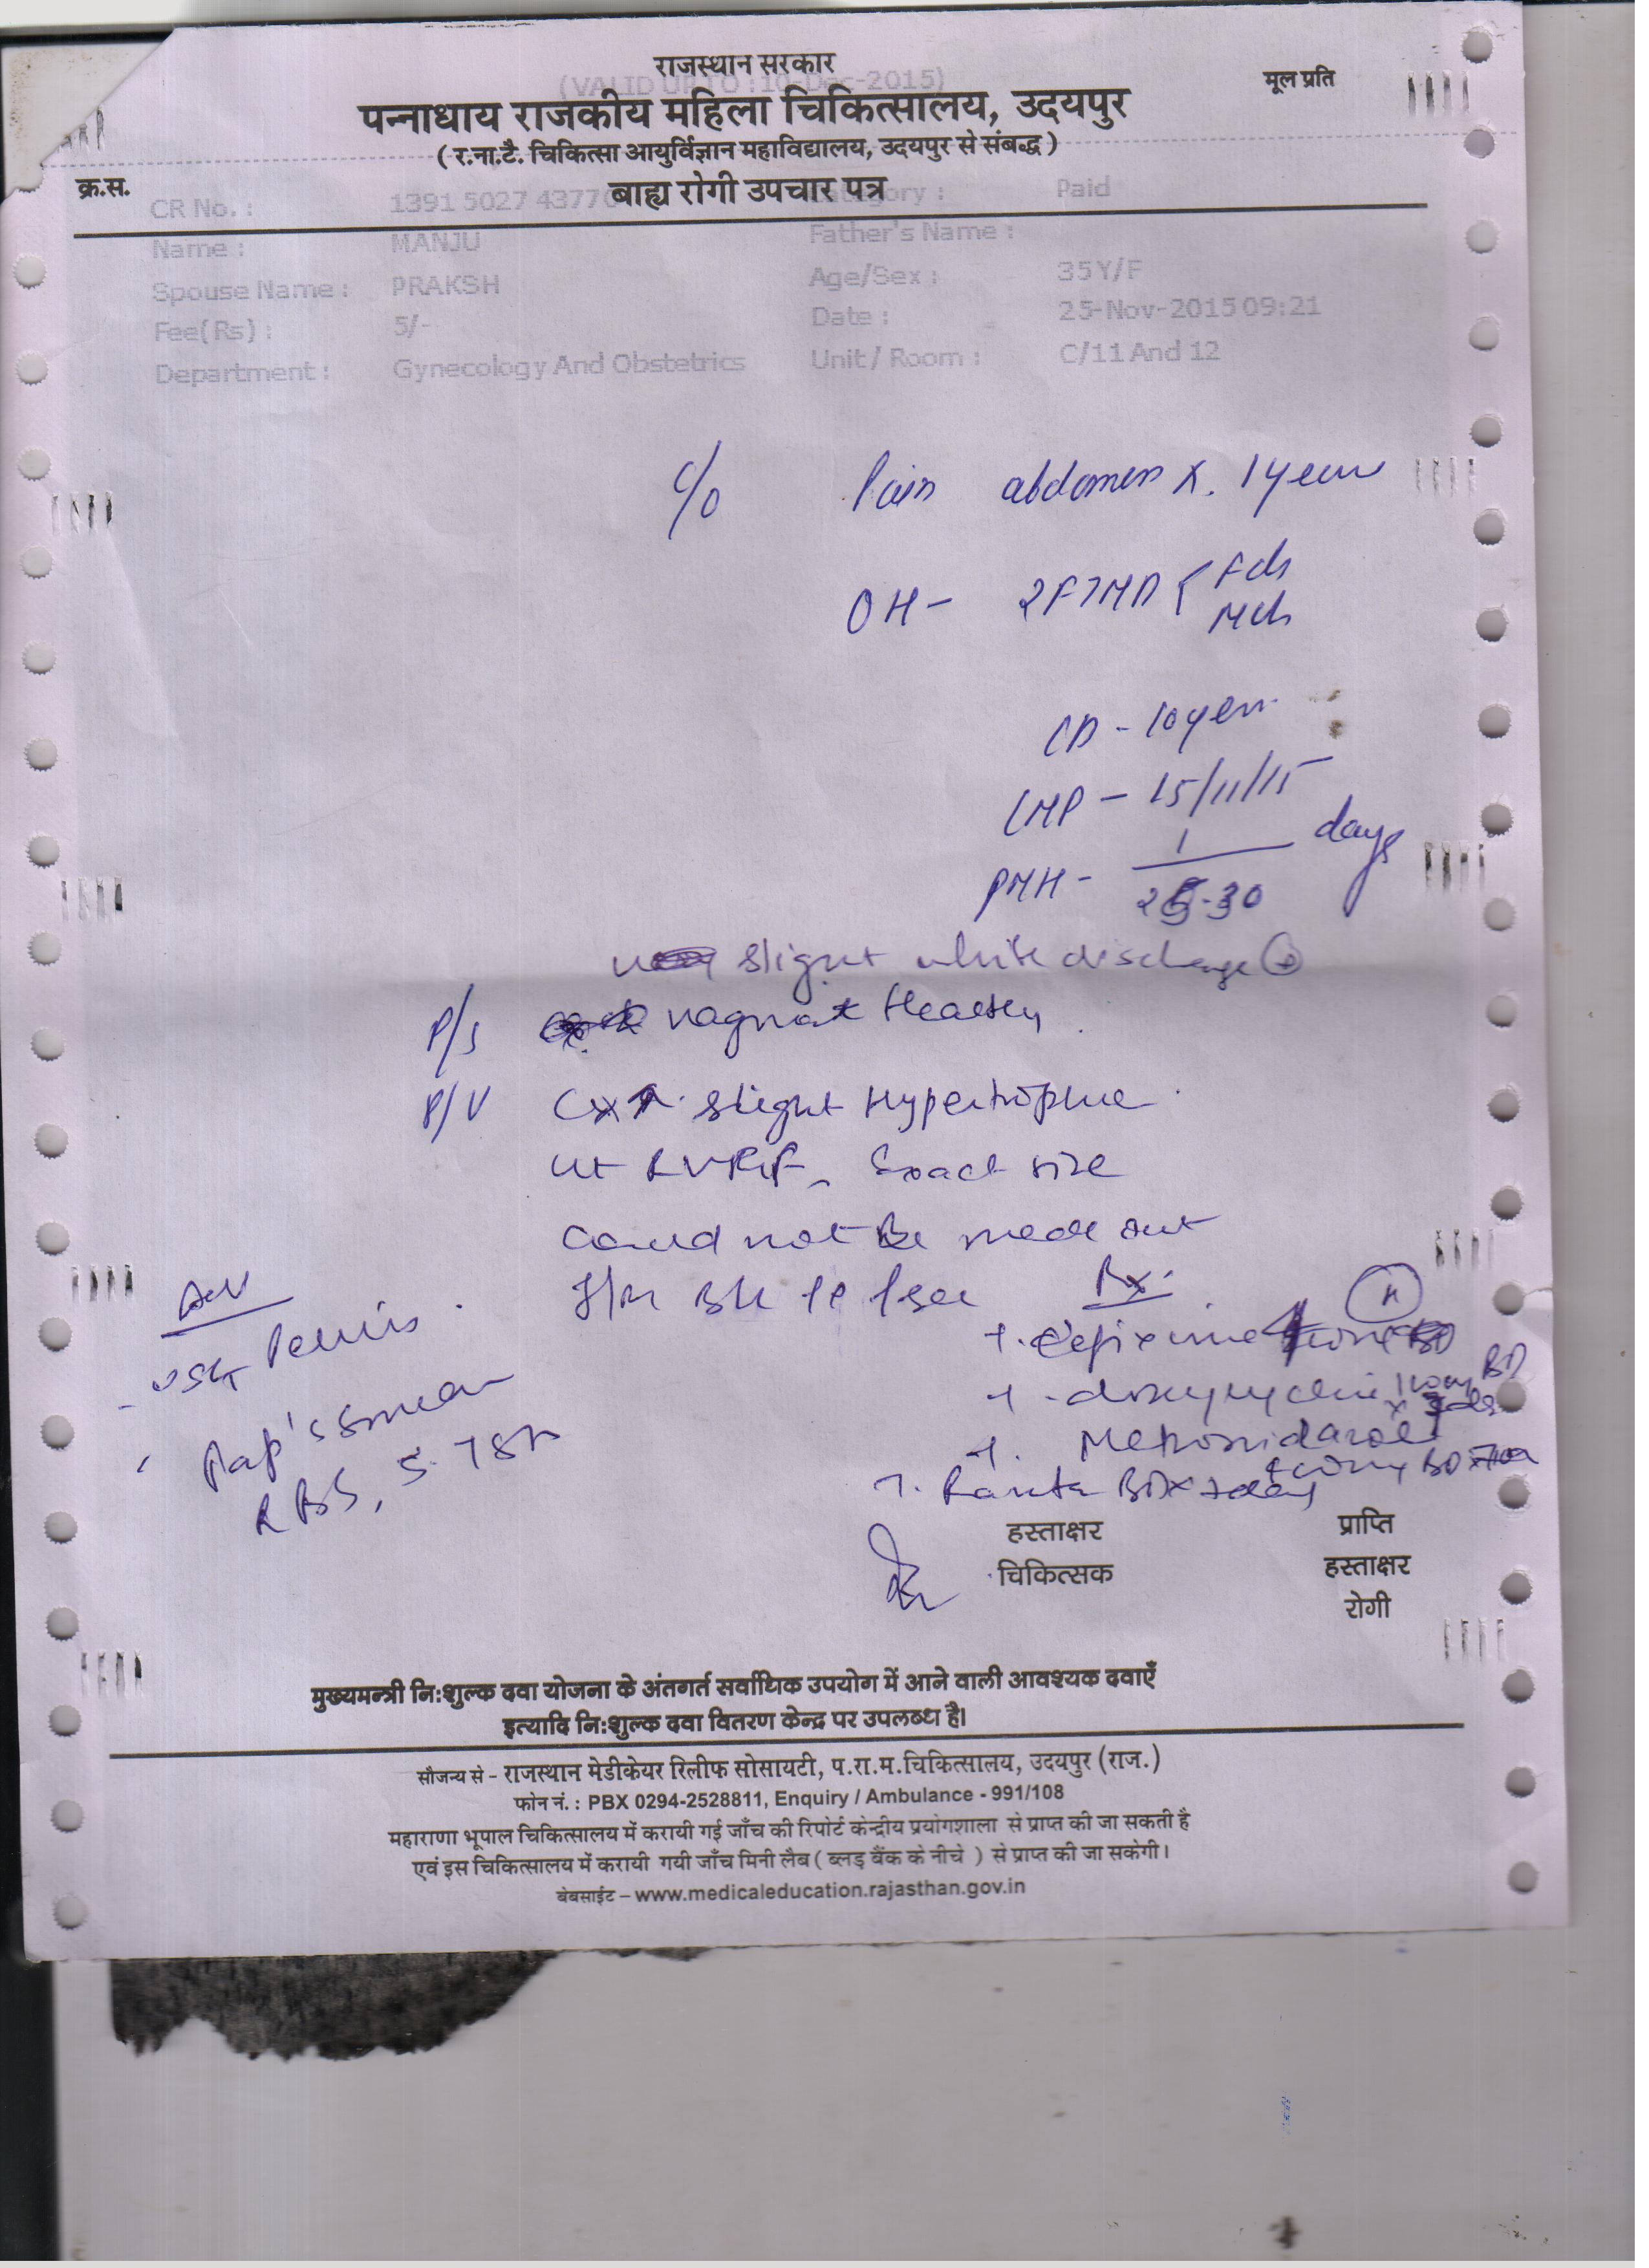 राजस्थान सरकार
(VALID UPTO :10-Dec-2015)
मूल प्रति
पन्नाधाय राजकीय महिला चिकित्सालय, उदयपुर
( र.ना.टै. चिकित्सा आयुर्विज्ञान महाविद्यालय, उदयपुर से संबद्ध )
क्र.स.
बाह्य रोगी उपचार पत्र
CR No. : 1391 5027 4377 Category : Paid
Name : MANJU Father's Name :
Spouse Name : PRAKSH Age/Sex : 35Y/F
Fee(Rs) : 5/- Date : 25-Nov-2015 09:21
Department : Gynecology And Obstetrics Unit / Room : C/11 And 12
c/o Pain abdomen x. 1 year
OH - 2FTND Fch
Mch
LD - 10 year
LMP - 15/11/15
PMH - days
slight white discharge
P/S Healthy
P/V Cx slight Hypertrophic
Ut RVRF, Exact size
could not be made out
Adv
Rx
USG Pelvis
T. Cefixime
T. doxycycline 100mg BD
Pap's smear
T. Metronidazole
RBS, S. TSH
T. Ranita BD x 7 days
हस्ताक्षर
चिकित्सक
प्राप्ति
हस्ताक्षर
रोगी
मुख्यमन्त्री नि:शुल्क दवा योजना के अंतगर्त सर्वाधिक उपयोग में आने वाली आवश्यक दवाएँ
इत्यादि नि:शुल्क दवा वितरण केन्द्र पर उपलब्ध है।
सौजन्य से - राजस्थान मेडीकेयर रिलीफ सोसायटी, प.रा.म.चिकित्सालय, उदयपुर (राज.)
फोन नं. : PBX 0294-2528811, Enquiry / Ambulance - 991/108
महाराणा भूपाल चिकित्सालय में करायी गई जाँच की रिपोर्ट केन्द्रीय प्रयोगशाला से प्राप्त की जा सकती है
एवं इस चिकित्सालय में करायी गयी जाँच मिनी लैब ( ब्लड बैंक के नीचे ) से प्राप्त की जा सकेगी।
बेबसाईट – www.medicaleducation.rajasthan.gov.in